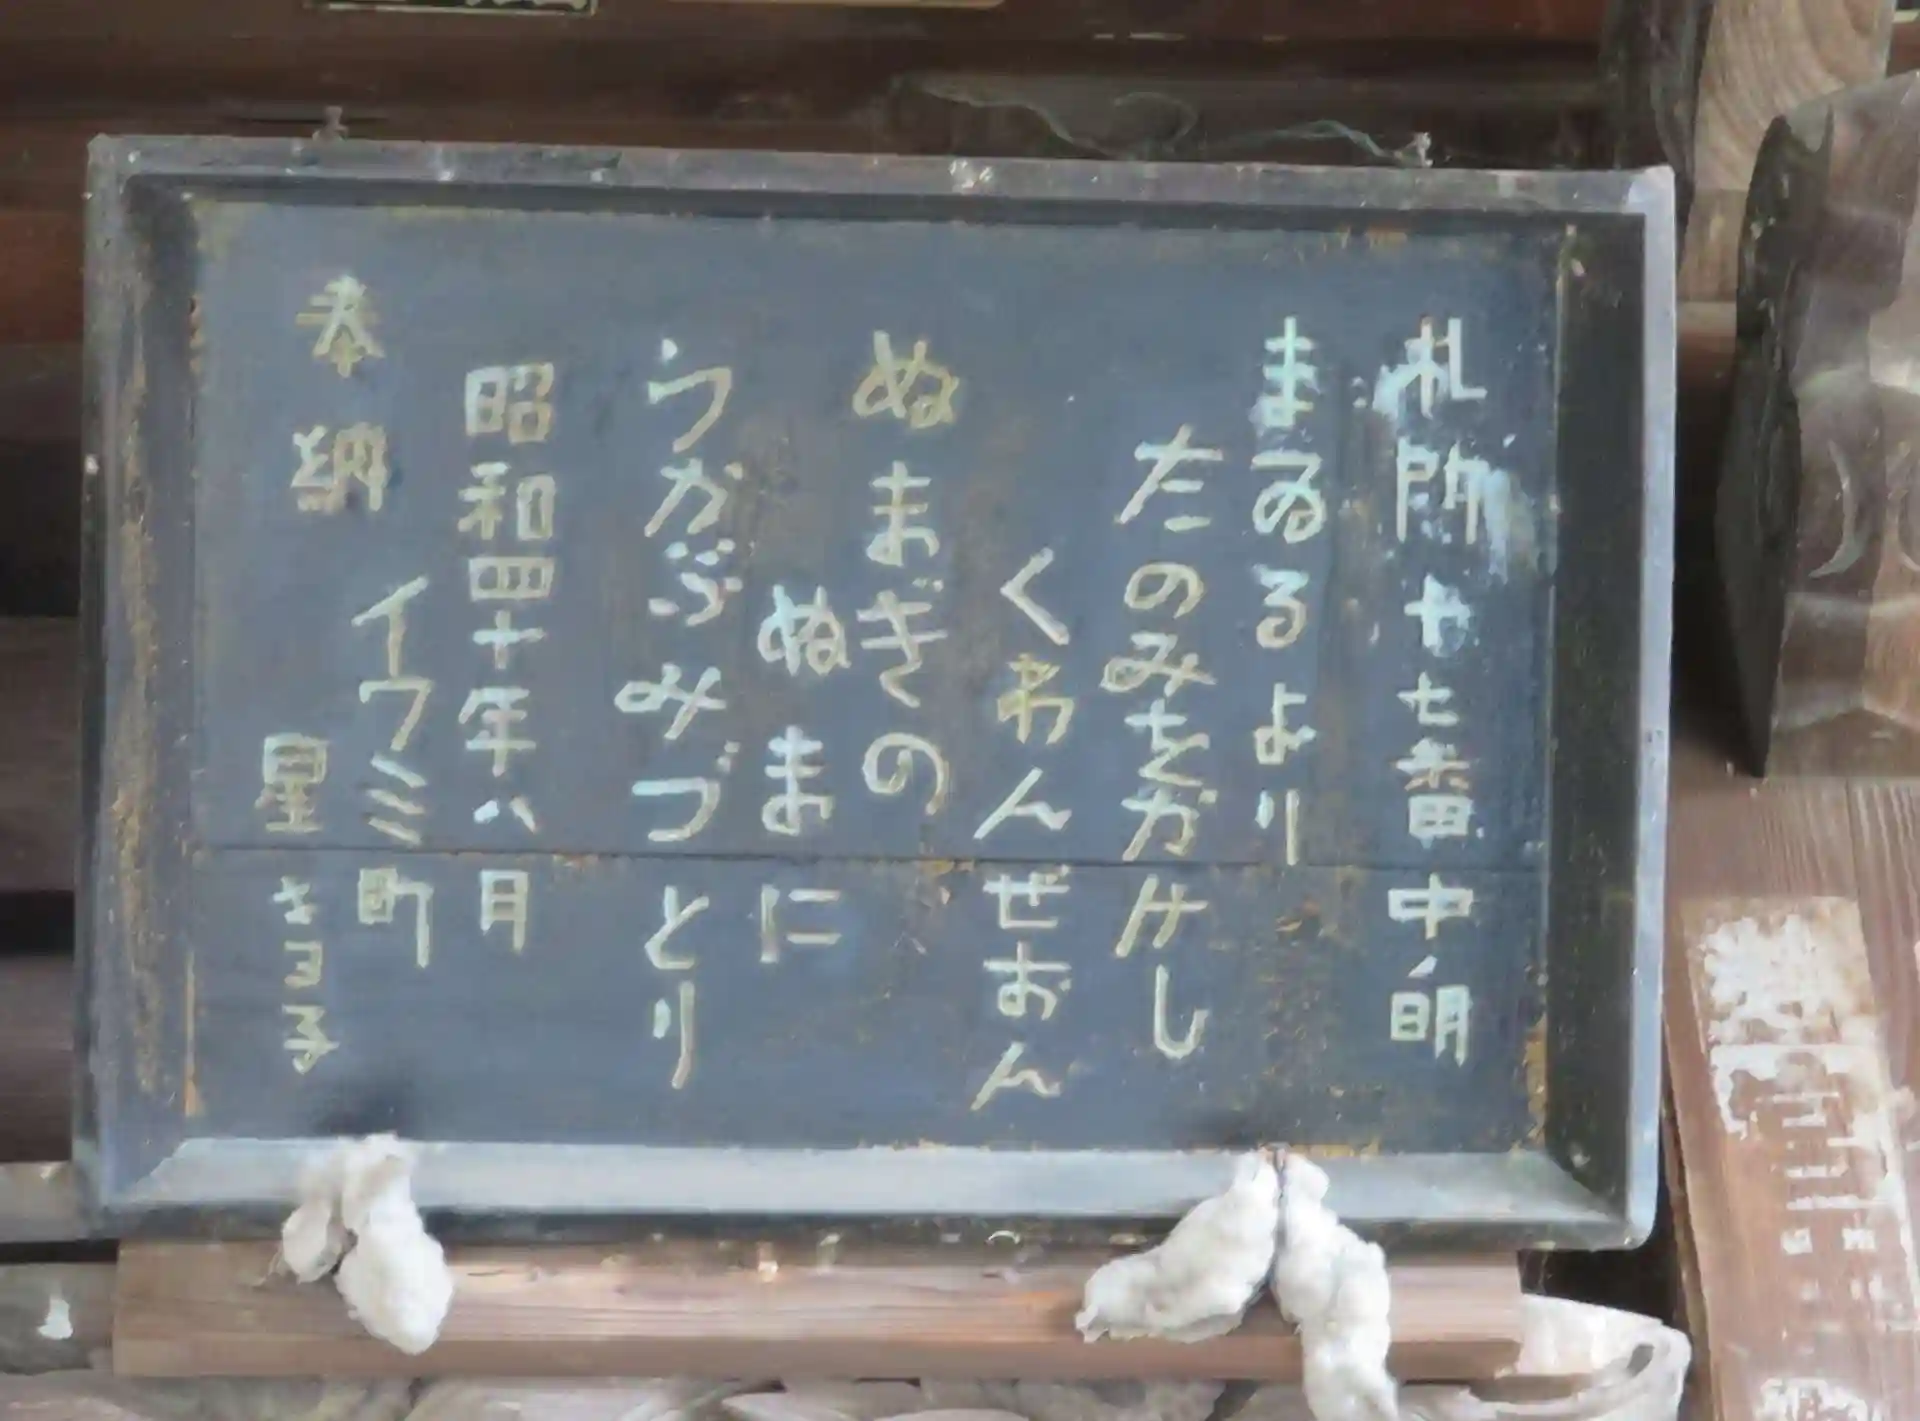 札所廿七番中ノ明
まゐるより
たのみをかけし
くわんぜおん
ぬまぎの
ぬまに
うかぶみづとり
昭和四十年八月
奉納
イワミ町
星さヨ子